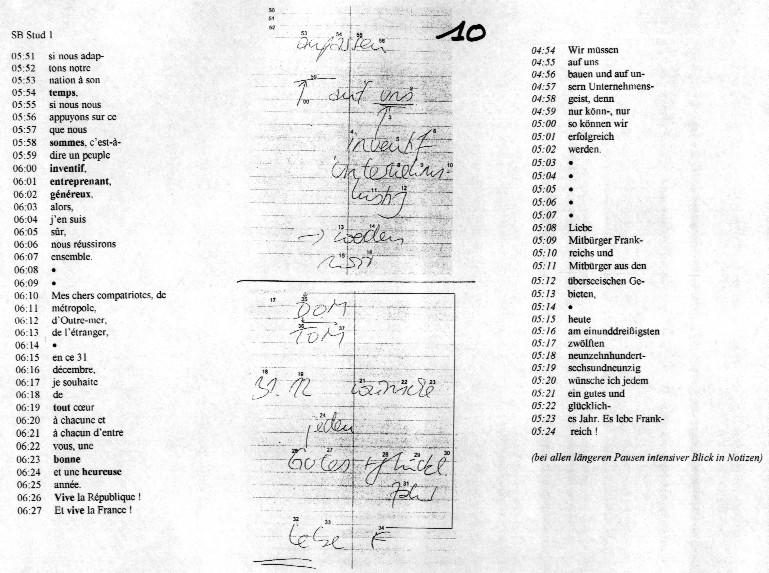 SB Stud 1
05:51 si nous adap-
05:52 tons notre
05:53 nation à son
05:54 temps,
05:55 si nous nous
05:56 appuyons sur ce
05:57 que nous
05:58 sommes, c'est-à-
05:59 dire un peuple
06:00 inventif,
06:01 entreprenant,
06:02 généreux,
06:03 alors,
06:04 j'en suis
06:05 sûr,
06:06 nous réussirons
06:07 ensemble.
06:08 •
06:09 •
06:10 Mes chers compatriotes, de
06:11 métropole,
06:12 d'Outre-mer,
06:13 de l'étranger,
06:14 •
06:15 en ce 31
06:16 décembre,
06:17 je souhaite
06:18 de
06:19 tout cœur
06:20 à chacune et
06:21 à chacun d'entre
06:22 vous, une
06:23 bonne
06:24 et une heureuse
06:25 année.
06:26 Vive la République !
06:27 Et vive la France !
10
anpassen
auf uns
inventif
lustig
→ werden
DOM
TOM
31. 12 wünsche
jeden
Gutes + glückl.
Jahr
Lebe F
04:54 Wir müssen
04:55 auf uns
04:56 bauen und auf un-
04:57 sern Unternehmens-
04:58 geist, denn
04:59 nur könn-, nur
05:00 so können wir
05:01 erfolgreich
05:02 werden.
05:03 •
05:04 •
05:05 •
05:06 •
05:07 •
05:08 Liebe
05:09 Mitbürger Frank-
05:10 reichs und
05:11 Mitbürger aus den
05:12 überseeischen Ge-
05:13 bieten,
05:14 •
05:15 heute
05:16 am einunddreißigsten
05:17 zwölften
05:18 neunzehnhundert-
05:19 sechsundneunzig
05:20 wünsche ich jedem
05:21 ein gutes und
05:22 glücklich-
05:23 es Jahr. Es lebe Frank-
05:24 reich !
(bei allen längeren Pausen intensiver Blick in Notizen)